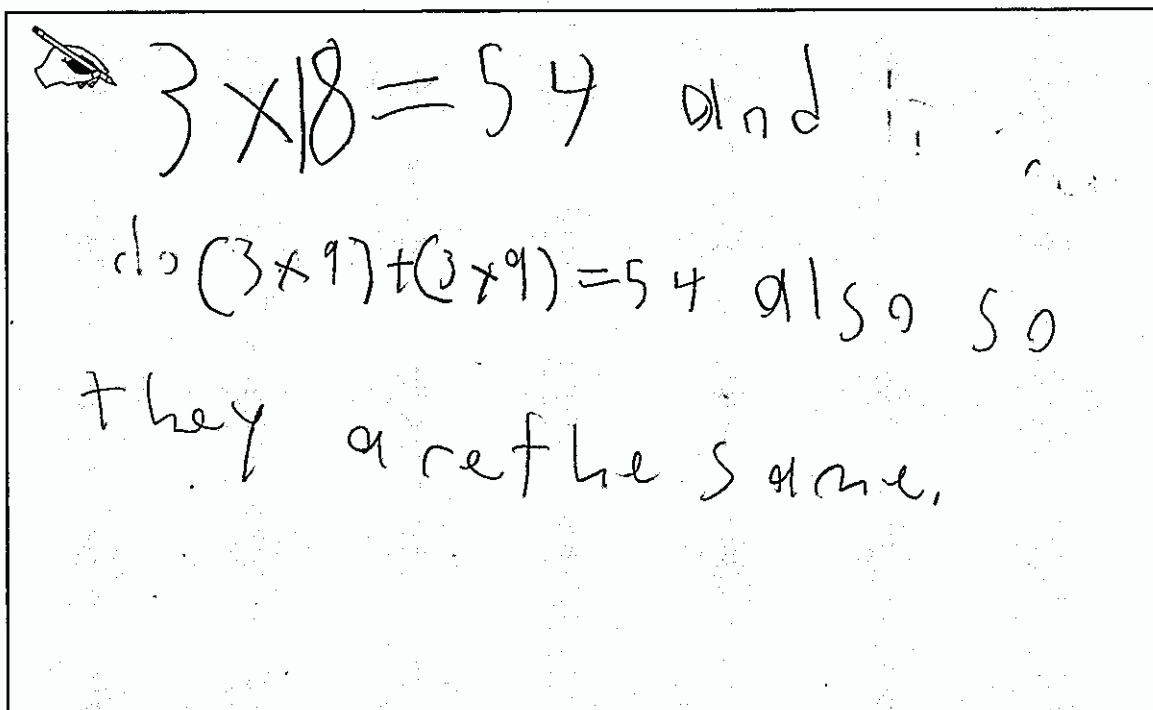 3 x 18 = 54 and
do (3 x 9) + (3 x 9) = 54 also so
they are the same.